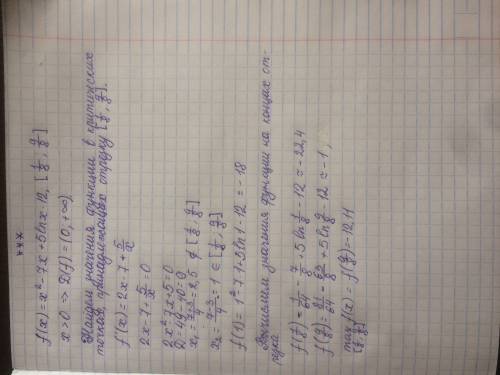 ***
f(x) = x² - 7x + 5 ln x - 12, [1/8, 9/8]
x > 0 => D(f) = (0, +∞)
Найдем значения функции в критических
точках, принадлежащих отрезку [1/8, 9/8].
f'(x) = 2x - 7 + 5/x
2x - 7 + 5/x = 0
2x² - 7x + 5 = 0
D = 49 - 40 = 9
x₁ = (7+3)/4 = 2,5 ∉ [1/8, 9/8]
x₂ = (7-3)/4 = 1 ∈ [1/8, 9/8]
f(1) = 1² - 7·1 + 5 ln 1 - 12 = - 18
Вычислим значения функции на концах от-
резка
f(1/8) = 1/64 - 7/8 + 5 ln 1/8 - 12 = - 22,4